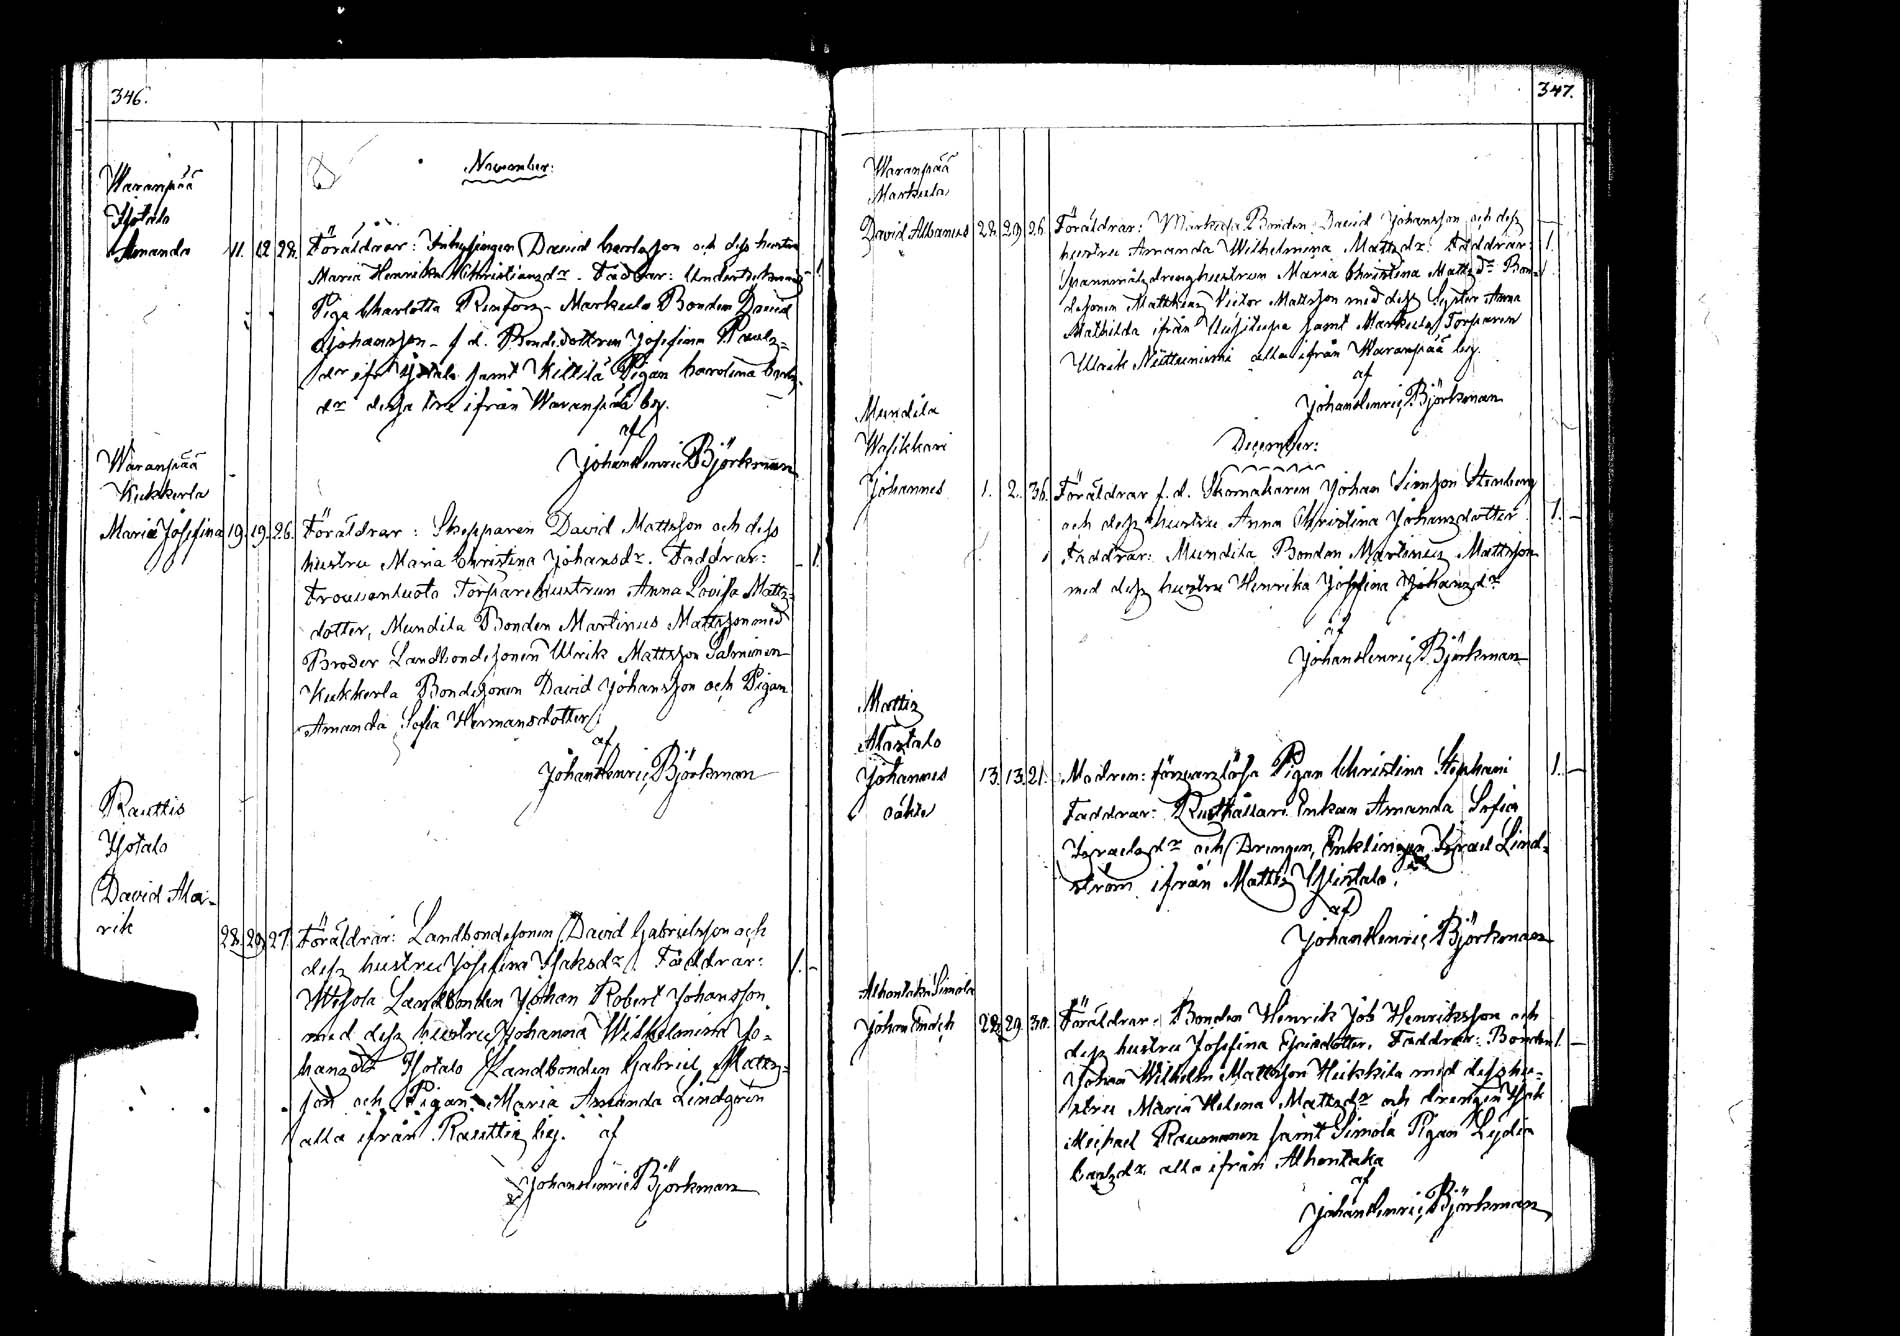 346.
November:
Waranpää
Isotalo
Amanda 11. 12. 28. Föräldrar: Inhysingen David Carlsson och dess hustru
Maria Henrika Christiansdr. Faddrar:
Piga Charlotta Renfors - Markula Bonden David
Johansson - f d. Bondedottren Josefina Pauls=
dr Isotalo samt Kittilä Pigan Carolina Carls=
dr dessa tre ifrån Waranpää by.
af
Johan Henric Björkman
Waranpää
Kukkerla
Maria Josefina 19. 19. 26. Föräldrar: Skepparen David Mattsson och dess
hustru Maria Christina Johansdr. Faddrar: 1
Torparehustrun Anna Lovisa Matts=
dotter, Mundila Bonden Martinus Mattsson med
Broder Landbondesonen Ulrik Mattsson Salminen
Kukkerla Bondesonen David Johansson och Pigan
Amanda Sofia Hermansdotter.
af
Johan Henric Björkman
Rauttis
Isotalo
David Ala-
rik 28. 29. 27. Föräldrar: Landbondesonen David Gabrielsson och
dess hustru Josefina Isaksdr. Faddrar: 1. -
Landbonden Johan Robert Johansson
med dess hustru Johanna Wilhelmina Jo=
hansdr Isotalo Landbonden Gabriel Matts=
son och Pigan Maria Amanda Lindgren
alla ifrån Rauttis by. af
Johan Henric Björkman
347.
Waranpää
Markula
David Albanus 28. 29 26. Föräldrar: Markula Bonden David Johansson och dess
hustru Amanda Wilhelmina Mattsdr. Faddrar: 1.
Spannmålsdrenghustrun Maria Christina Mattsdr Bon=
desonen Matthias Victor Mattsson med dess Syster Anna
Mathilda ifrån Uusitupa samt Markula Torparen
Ulrik Niittuniemi alla ifrån Waranpää by.
af
Johan Henric Björkman
December:
Mundila
Wasikkari
Johannes 1. 2. 36. Föräldrar f. d. Skomakaren Johan Simsson Stenberg
och dess hustru Anna Christina Johansdotter. 1. -
Faddrar: Mundila Bonden Martinus Mattsson
med dess hustru Henrika Josefina Johansdr
af
Johan Henric Björkman
Mattis
Alastalo
Johannes 13. 13. 21. Modren: försvarslösa Pigan Christina Stephani 1. -
oäkta
Faddrar: Rusthållare Enkan Amanda Sofia
Israelsdr och Drengen, Enklingen Israel Lind=
ström ifrån Mattis
af
Johan Henric Björkman
Alhontaka Simola
Johan Enoch 28. 29. 30. Föräldrar: Bonden Henrik Job Henriksson och
dess hustru Josefina Esaisdotter. Faddrar: Bonden 1. -
Johan Wilhelm Mattsson Heikkilä med dess hu=
stru Maria Helena Mattsdr och drengen Isak
Michael Rausmanen samt Simola Pigan Lydia
Carlsdr. alla ifrån Alhontaka
af
Johan Henric Björkman